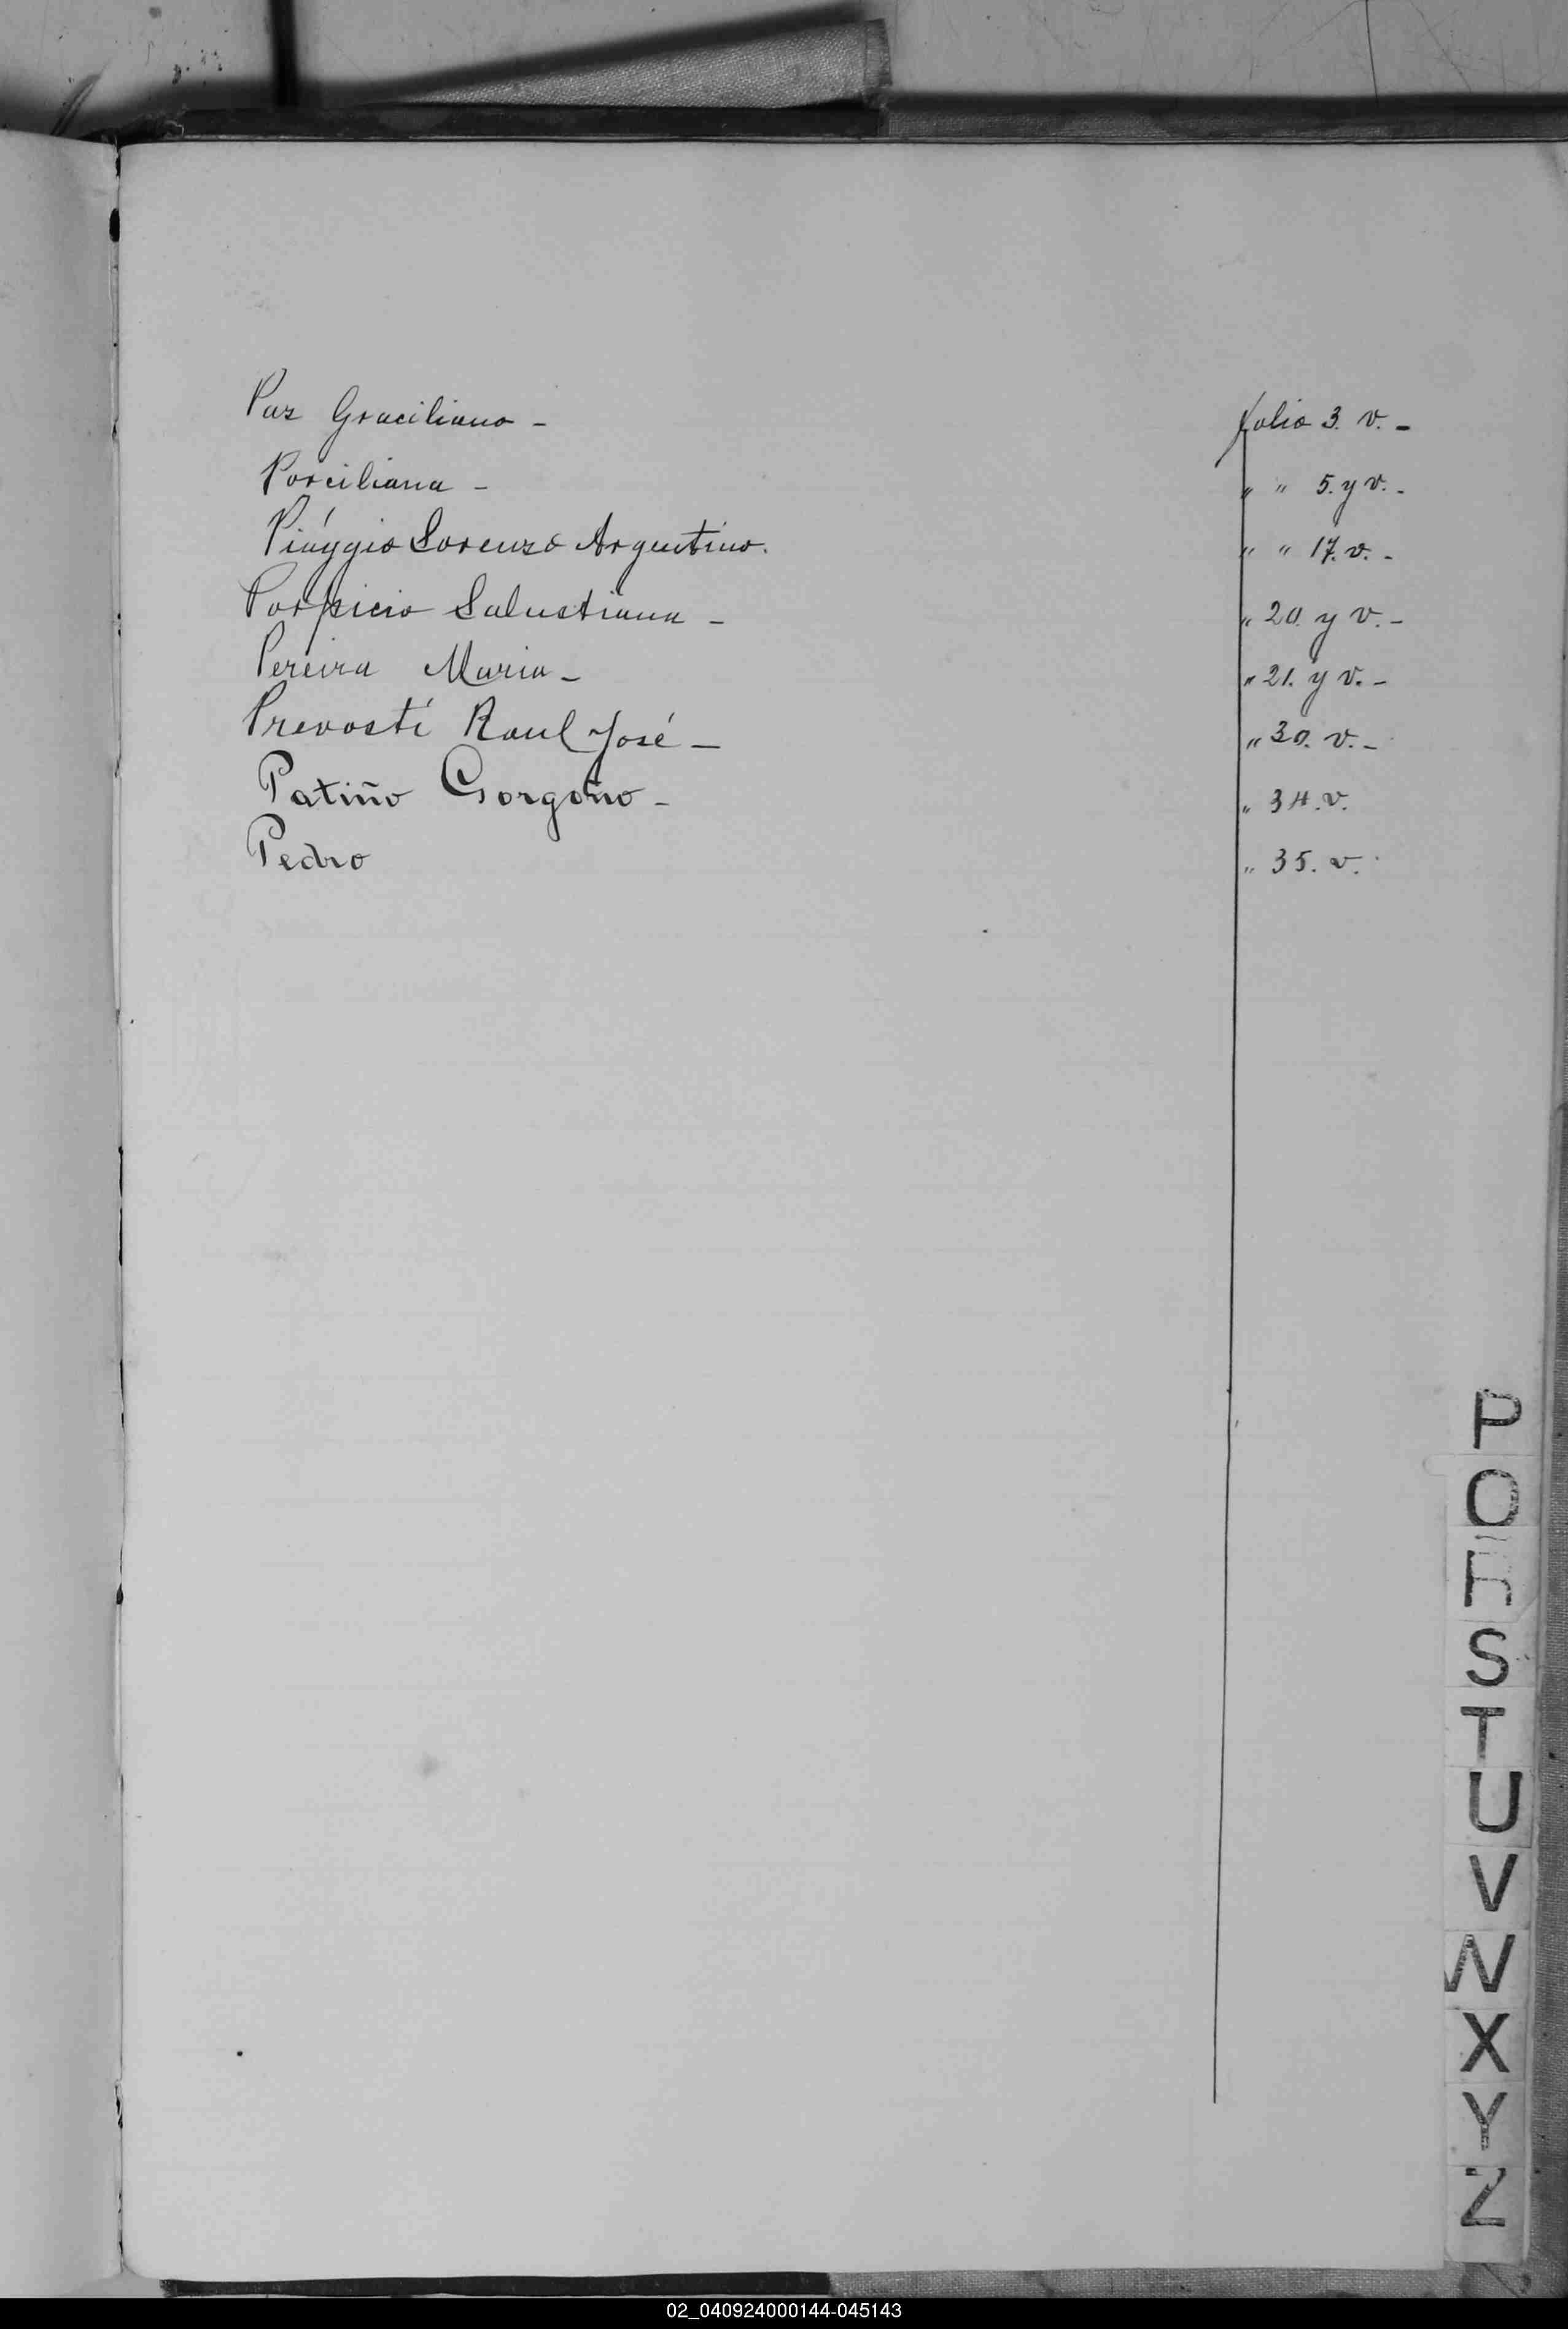 Paz Graciliano - folio 3. v. -
Porciliana - " " 5. y v. -
Piággio Lorenzo Argentino. " " 17. v. -
Porpicio Salustiana - " 20. y v. -
Pereira Maria - " 21. y v. -
Prevostí Raul José - " 30. v. -
Patiño Gorgoño - " 34. v.
Pedro " 35. v.
P
Q
R
S
T
U
V
W
X
Y
Z
02_040924000144-045143